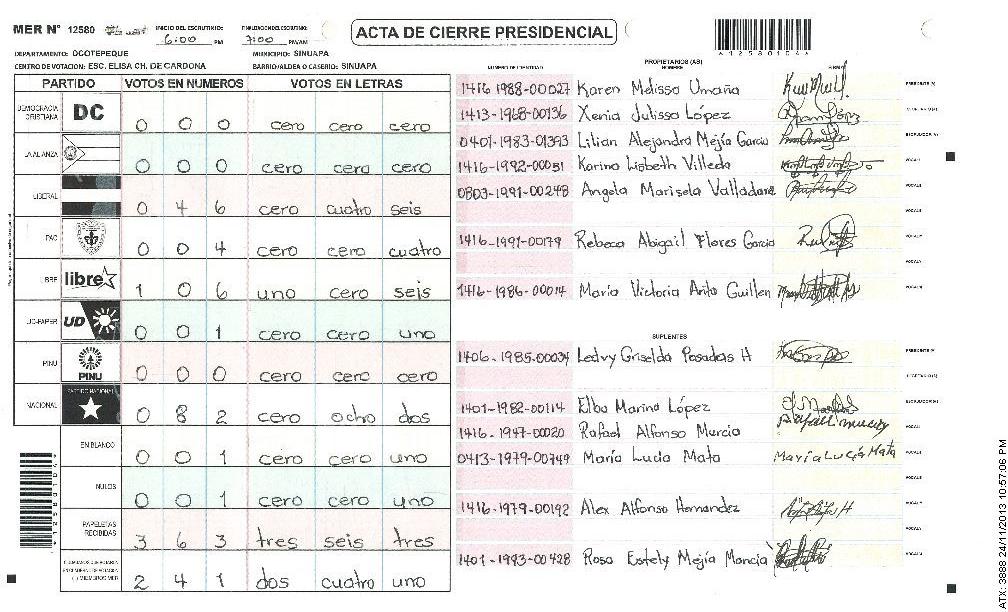 MER Nº 12580
INICIO DEL ESCRUTINIO: 6:00 PM
FINALIZACION DEL ESCRUTINIO: 7:00 PM/AM
ACTA DE CIERRE PRESIDENCIAL
*12580104*
DEPARTAMENTO: OCOTEPEQUE
MUNICIPIO: SINUAPA
CENTRO DE VOTACION: ESC. ELISA CH. DE CARDONA
BARRIO/ALDEA O CASERIO: SINUAPA
PARTIDO VOTOS EN NUMEROS VOTOS EN LETRAS
DEMOCRACIA CRISTIANA DC 0 0 0 cero cero cero
LA ALIANZA 0 0 0 cero cero cero
LIBERAL 0 4 6 cero cuatro seis
PAC 0 0 4 cero cero cuatro
LIBRE libre 1 0 6 uno cero seis
UD-FAPER UD 0 0 1 cero cero uno
PINU PINU 0 0 0 cero cero cero
NACIONAL PARTIDO NACIONAL 0 8 2 cero ocho dos
EN BLANCO 0 0 1 cero cero uno
NULOS 0 0 1 cero cero uno
PAPELETAS RECIBIDAS 3 6 3 tres seis tres
2 4 1 dos cuatro uno
NUMERO DE IDENTIDAD PROPIETARIOS (AS) NOMBRE FIRMA
1416 1988-00027 Karen Melissa Umaña
1413-1968-00136 Xenia Julissa López
0401-1983-01393 Lilian Alejandra Mejía Garcia
1416-1992-00051 Karina Lisbeth Villeda
0803-1991-00248 Angela Marisela Valladare
1416-1991-00179 Rebeca Abigail Flores Garcia
1416-1986-00014 Maria Victoria Arita Guillen
SUPLENTES
1406-1985-00034 Ledvy Griselda Posadas H
1401-1982-00114 Elba Marina López
1416-1947-00020 Rafael Alfonso Murcia
0413-1979-00749 María Lucia Mata María Lucía Mata
1416-1979-00192 Alex Alfonso Hernandez
1401-1993-00428 Rosa Estely Mejía Mancia
ATX: 3888 24/11/2013 10:57:06 PM